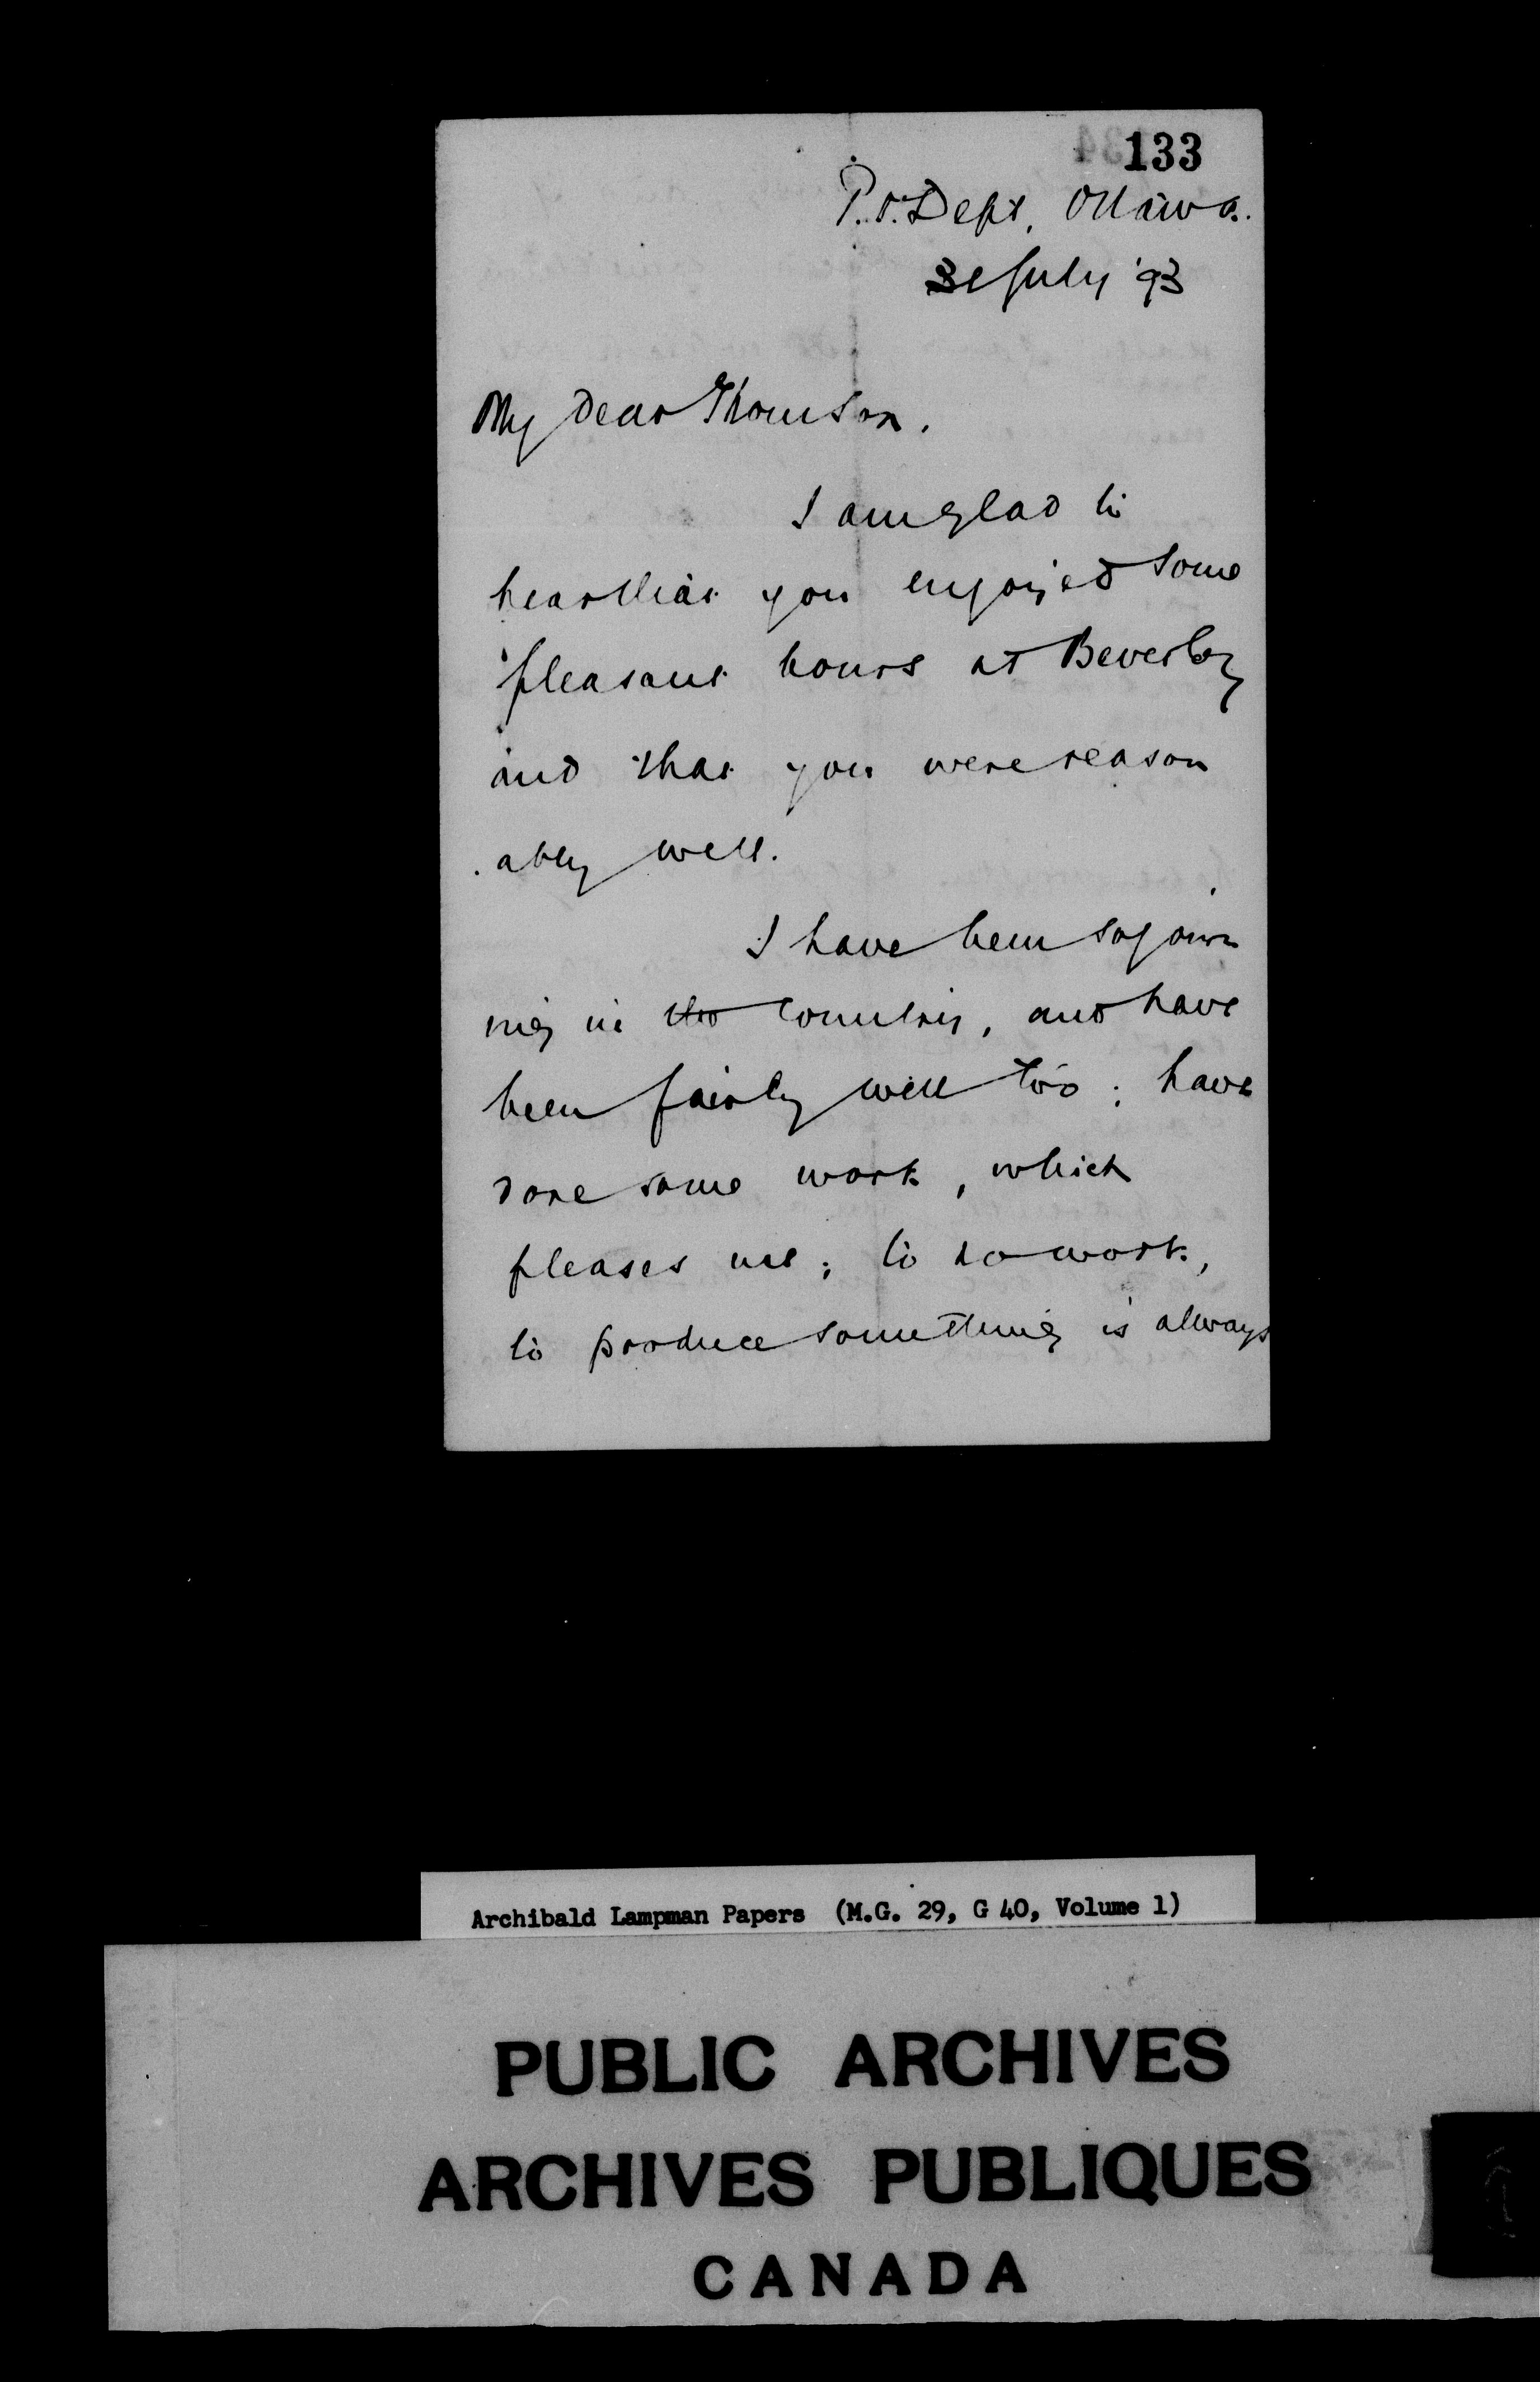 133
P.O. Dept, Ottawa.
31 July '93
My dear Thomson.
I am glad to
hear that you enjoyed some
pleasant hours at Beverley
and that you were reason
ably well.
I have been sojour
ning in the country, and have
been fairly well too; have
done some work, which
pleases me; to do work,
to produce something is always
Archibald Lampman Papers (M.G. 29, G 40, Volume 1)
PUBLIC ARCHIVES
ARCHIVES PUBLIQUES
CANADA